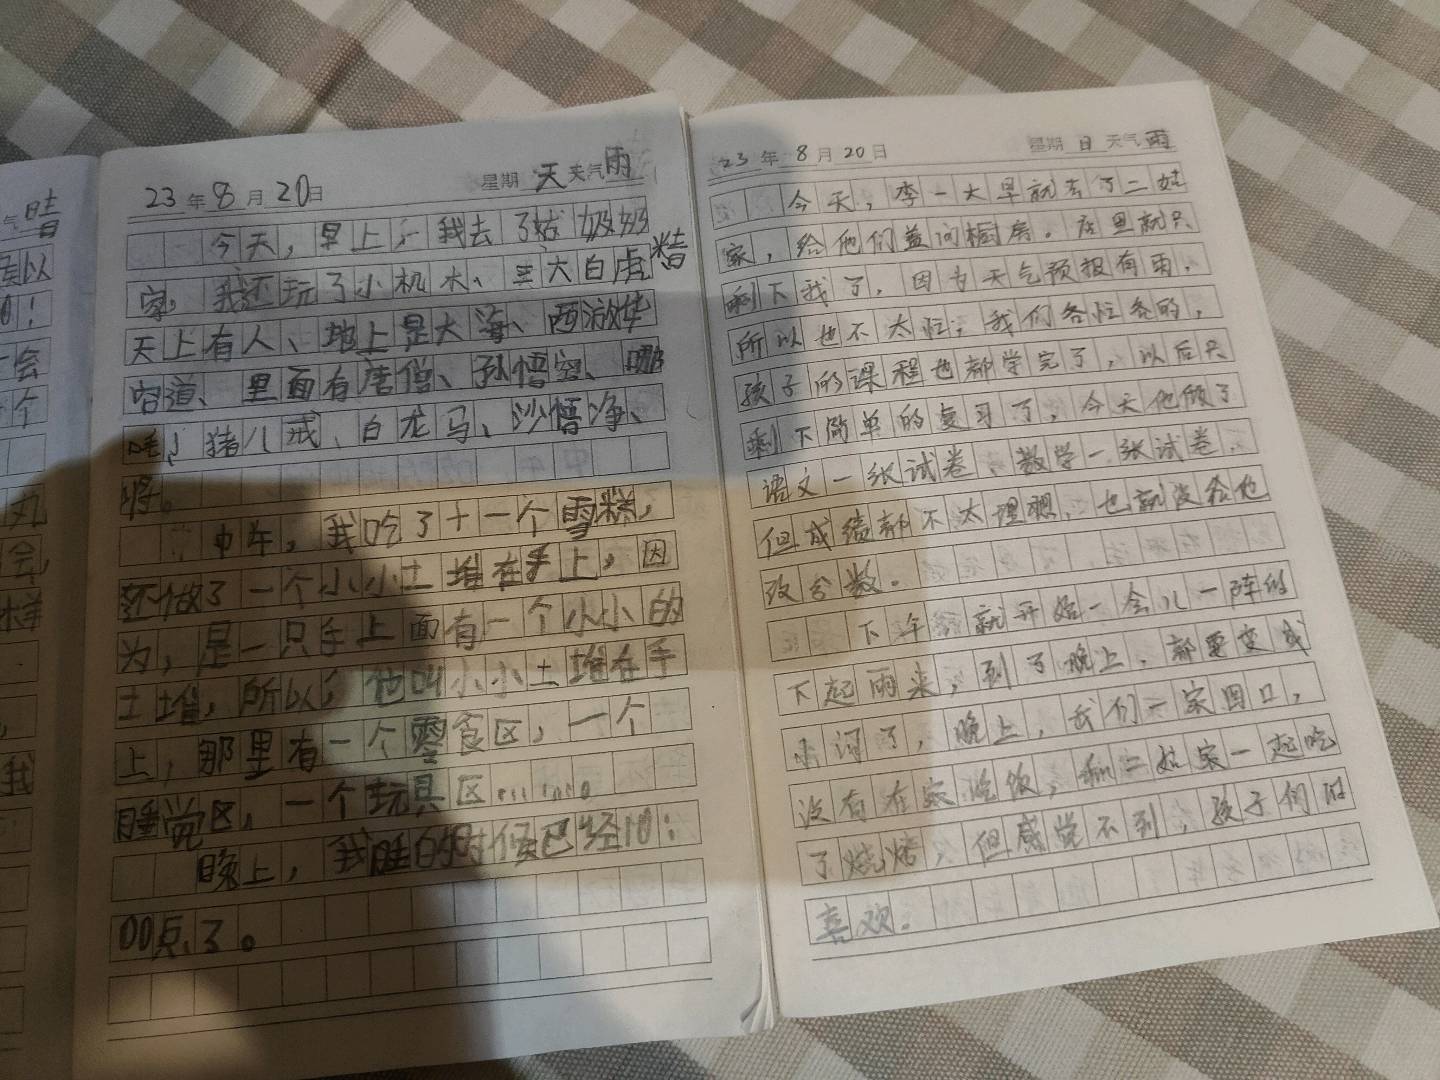 晴
以
！
会
个
我
23年8月20日
星期天 天气雨
今天，早上，我去了姑奶奶
家，我还玩了小机木、三大白虎糖
天上有人、地上是大海、西游华
容道、里面有唐僧、孙悟空、哪
吒、猪八戒、白龙马、沙悟净、
将。
中午，我吃了十一个雪糕，
还做了一个小小土堆在手上，因
为，是一只手上面有一个小小的
土堆，所以，他叫小小土堆在手
上，那里有一个零食区，一个
睡觉区，一个玩具区……。
晚上，我睡的时候已经10：
00点了。
23年8月20日
星期日 天气雨
今天，李一大早就去了二姑
家，给他们盖间橱房。店里就只
剩下我了，因为天气预报有雨，
所以也不太忙，我们各忙各的，
孩子的课程也都学完了，以后只
剩下简单的复习了，今天他做了
语文一张试卷、数学一张试卷，
但成绩都不太理想，也就没给他
改分数。
下午就开始一会儿一阵的
下起雨来，到了晚上，都要变成
小河了，晚上，我们一家四口，
没有在家吃饭，和二姑家一起吃
了烧烤，但感觉不到，孩子们的
喜欢。